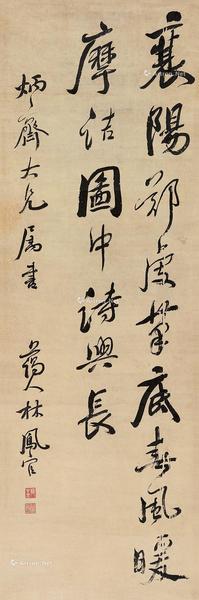 襄陽鄭虔筆底春風暖
摩詰圖中詩興長
炳齋大兄屬書
藹人林鳳官